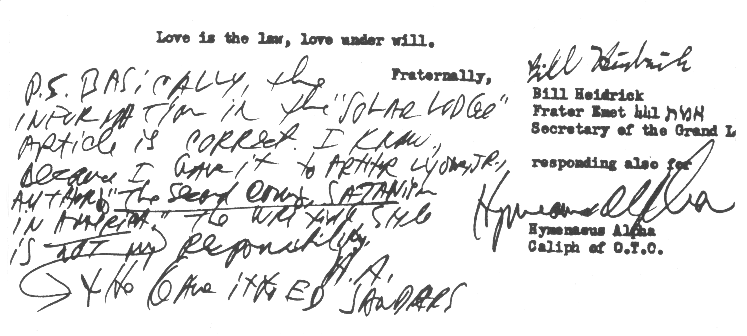 Love is the law, love under will.
Fraternally,
Bill Heidrick
Bill Heidrick
Frater Emet 441
Secretary of the Grand L
responding also for
Hymenaeus Alpha
Hymenaeus Alpha
Caliph of O.T.O.
P.S. BASICALLY, the
INFORMATION IN the "SOLAR LODGE"
ARTICLE IS CORRECT. I KNOW,
because I GAVE IT to ARTHUR LYONS, JR.,
AUTHOR, "the Second Coming, SATANISM
IN AMERICA." the WRITING Style
is not my Responsibility.
H.A.
who GAVE it to ED SANDERS